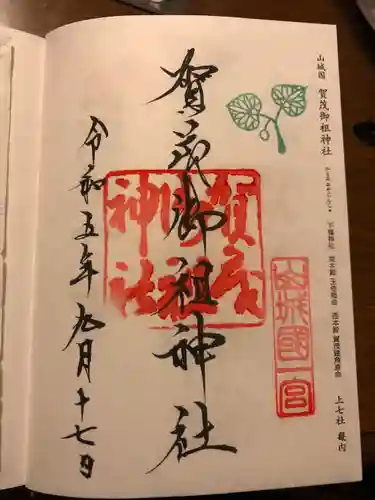 山城國 賀茂御祖神社
下鴨神社 東本殿 玉依姫命 西本殿 賀茂建角身命
上七社 殿内
山城國一宮
賀茂御祖神社
賀茂御祖神社
令和五年九月十七日